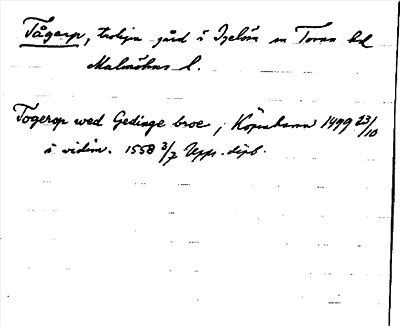 Tågarp, trolgn gård i Igelösa sn Torna hd
Malmöhus l.
Togerop wed Gedinge broe, Köpenhamn 1499 23/10
i vidim. 1558 3/7 Upps. dipl.